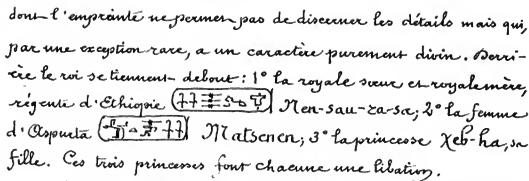 dont l'empreinte ne permet pas de discerner les détails mais qui,
par une exception rare, a un caractère purement divin. Derri-
ère le roi se tiennent debout : 1° la royale sœur et royale mère,
régente d'Ethiopie Nen-sau-ra-sa; 2° la femme
d'Aspurta Matsenen; 3° la princesse χeb-ha, sa
fille. Ces trois princesses font chacune une libation.